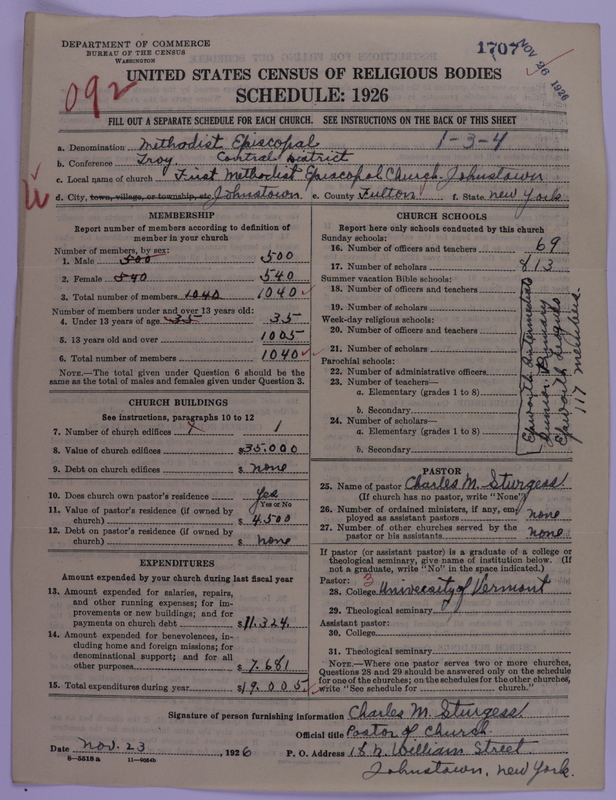 DEPARTMENT OF COMMERCE
BUREAU OF THE CENSUS
WASHINGTON
1707
NOV 26 1926
092
UNITED STATES CENSUS OF RELIGIOUS BODIES
SCHEDULE: 1926
FILL OUT A SEPARATE SCHEDULE FOR EACH CHURCH. SEE INSTRUCTIONS ON THE BACK OF THIS SHEET
a. Denomination Methodist Episcopal 1-3-4
b. Conference Troy Central District
c. Local name of church First Methodist Episcopal Church-Johnstown
d. City, town, village, or township, etc Johnstown e. County Fulton f. State New York
MEMBERSHIP
Report number of members according to definition of member in your church
Number of members, by sex:
1. Male 500 500
2. Female 540 540
3. Total number of members 1040 1040
Number of members under and over 13 years old:
4. Under 13 years of age 35 35
5. 13 years old and over 1005
6. Total number of members 1040
NOTE.—The total given under Question 6 should be the same as the total of males and females given under Question 3.
CHURCH BUILDINGS
See instructions, paragraphs 10 to 12
7. Number of church edifices 1 1
8. Value of church edifices $35.000
9. Debt on church edifices $ none
10. Does church own pastor's residence Yes
Yes or No
11. Value of pastor's residence (if owned by church) $ 4.500
12. Debt on pastor's residence (if owned by church) $ none
EXPENDITURES
Amount expended by your church during last fiscal year
13. Amount expended for salaries, repairs, and other running expenses; for improvements or new buildings; and for payments on church debt $11.324
14. Amount expended for benevolences, including home and foreign missions; for denominational support; and for all other purposes $ 7.681
15. Total expenditures during year $19.005
CHURCH SCHOOLS
Report here only schools conducted by this church
Sunday schools:
16. Number of officers and teachers 69
17. Number of scholars 813
Summer vacation Bible schools:
18. Number of officers and teachers
19. Number of scholars
Week-day religious schools:
20. Number of officers and teachers
21. Number of scholars
Parochial schools:
22. Number of administrative officers
23. Number of teachers—
a. Elementary (grades 1 to 8)
b. Secondary
24. Number of scholars—
a. Elementary (grades 1 to 8)
b. Secondary
Epworth Intermediate
Junior Primary
Epworth League
117 members.
PASTOR
25. Name of pastor Charles M. Sturgess
(If church has no pastor, write "None")
26. Number of ordained ministers, if any, employed as assistant pastors none
27. Number of other churches served by the pastor or his assistants none
If pastor (or assistant pastor) is a graduate of a college or theological seminary, give name of institution below. (If not a graduate, write "No" in the space indicated.)
Pastor: 3
28. College University of Vermont
29. Theological seminary
Assistant pastor:
30. College
31. Theological seminary
NOTE.—Where one pastor serves two or more churches, Questions 28 and 29 should be answered only on the schedule for one of the churches; on the schedules for the other churches, write "See schedule for church."
Signature of person furnishing information Charles M. Sturgess
Official title Pastor of Church
Date Nov. 23, 1926 P. O. Address 18 N. William Street
Johnstown, New York.
8—5518a 11—9064b